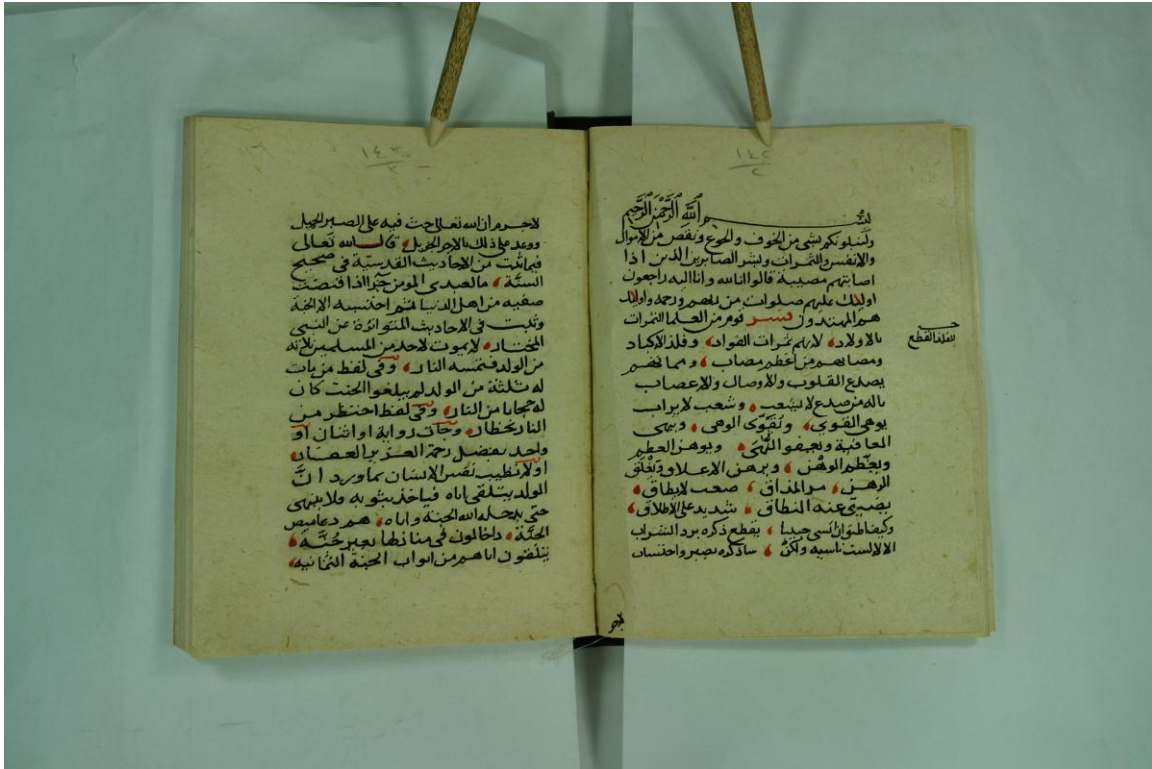 ١٤٢
٢
بسم الله الرحمن الرحيم
ولنبلونكم بشي من الخوف والجوع ونقص من الاموال
والانفس والثمرات وبشر الصابرين الذين اذا
اصابتهم مصيبة قالوا انا لله وانا اليه راجعون
اولئك عليهم صلوات من ربهم ورحمة واولئك
هم المهتدون فسر قوم من العلما الثمرات
بالاولاد لانهم ثمرات الفواد وفلذ الاكباد
ومصابهم من اعظم مصاب ومما
يصدع القلوب والاوصال والاعصاب
ياله من صدع لا يشعب وشعب لا يراب
يوهي القوي ويقوى الوهي وينهى
العافية ويعفو النهى ويوهن العظم
ويعظم الوهن ويرهن الاعلاق ويعلق
الرهن مر المذاق صعب لا يطاق
يضيق عنه النطاق شديد على الاطلاق
وكيف اطيق ان انسى حبيبا يقطع ذكره برد الشراب
الا لا لست ناسيه ولكن ساذكره بصبر واحتساب
الفلذ القطع
لاجرم
١٤٣
٣
لاجرم ان الله تعالى حث فيه على الصبر الجميل
ووعد على ذلك بالاجر الجزيل قال الله تعالى
فيما ثبت من الاحاديث القدسية في صحيح
السنة ما لعبدي المومن جزا اذا قبضت
صفيه من اهل الدنيا ثم احتسبه الا الجنة
وثبت في الاحاديث المتواترة عن النبي
المختار لا يموت لاحد من المسلمين ثلاثة
من الولد فتمسه النار وفي لفظ من مات
له ثلثة من الولد لم يبلغوا الحنث كان
له حجابا من النار وفي لفظ احتظر من
النار بحظار وجات رواية او اثنان او
واحد بفضل رحمة العزيز الغفار
اولا تطيب نفس الانسان بما ورد ان
المولد يتلقى اباه فياخذ بثوبه ولا ينتهى
حتى يدخله الله الجنة واباه هم دعاميص
الجنة داخالون في منازلها بغير جنة
يتلقون اباهم من ابواب الجنة الثمانيه